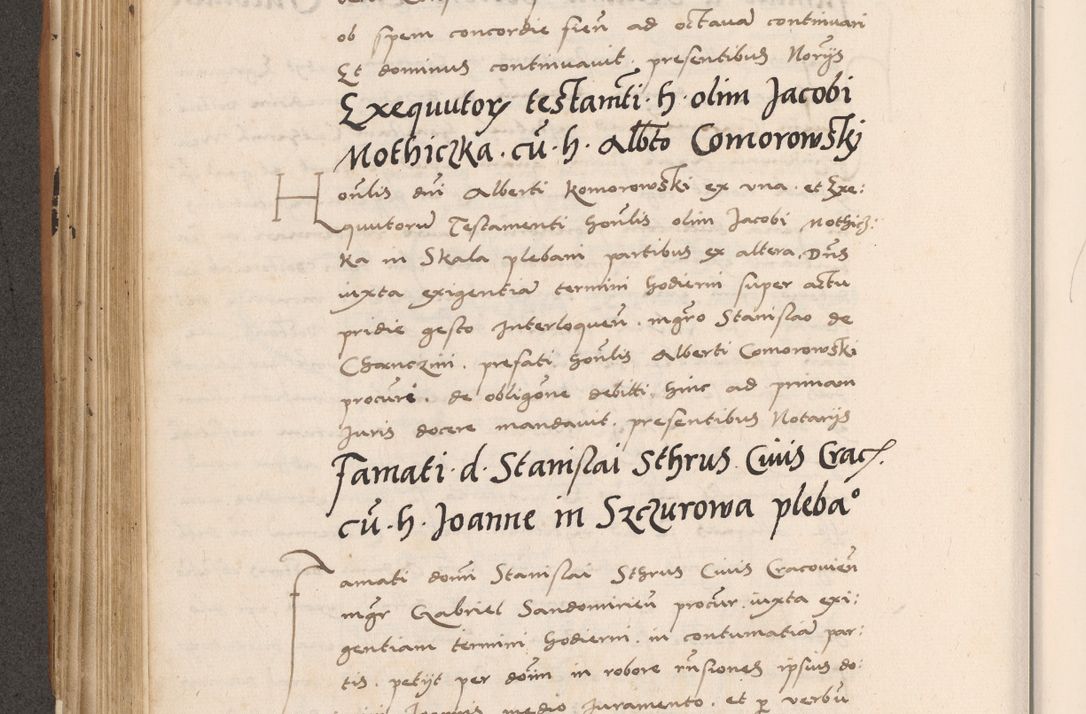 ob spem concordie fieñ ad octavaᷓ continuari
Et dominus continuavit, presentibus Norijs
Exequutorꝝ testam̃ti · h · olim Jacobi
Mothiczka · cũ · h · Alb̃to Comorowski
Hoñlis dñi Alberti Komorowski ex una, et Exe:
quutorũ Testamenti hoñlis olim Jacobi Mothicz:
ka in Skala plebani partibus ex altera, Dñs
iuxta exigentiã termini hodierni super actu
pridie gesto Interloqueñ, mg̃ro Stanislao de
Charczini, prefati hoñlis Alberti Comorowski
procurẽ, de obligõne debitti hinc ad primam
Juris docere mandavit, presentibus Notarijs
Famati · d · Stanislai Sthrus Civis Crac̃.
cũ · h · Joanne in Szczurowa pleba°
Famati domi Stanislai Sthrus Civis Cracovieñ
mg̃r Gabriel Sandomirieñ procur̃, iuxta exi:
gentiam termini hodierni, in contumatiã par:
tis, petijt per dõim in robore rñsiones ipsius do:
Joannis medio Juramento, et ꝑ verbũ